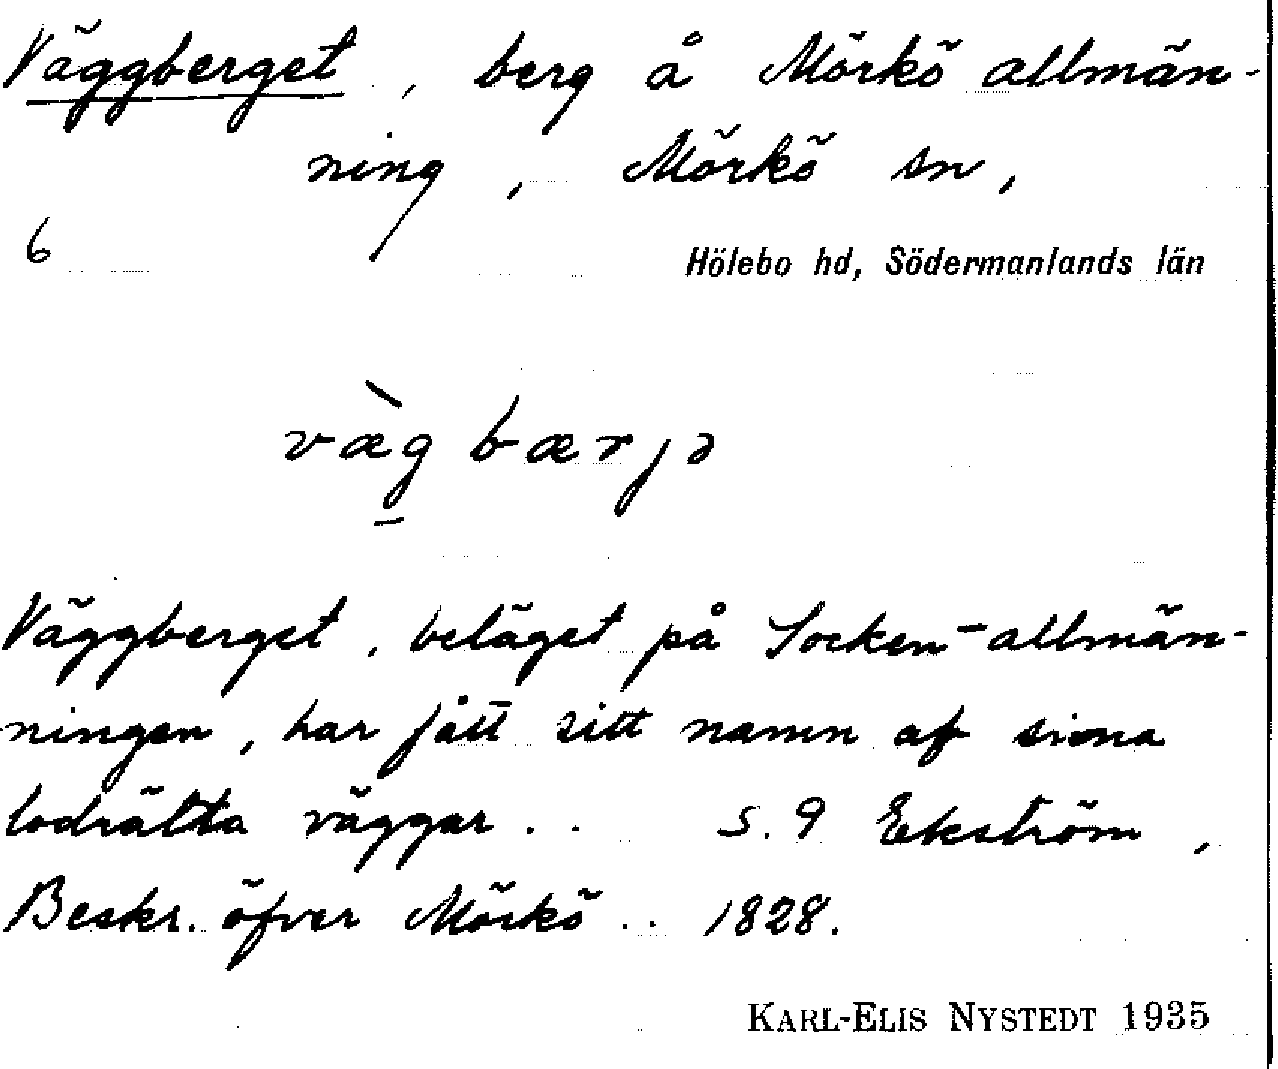 Väggberget, berg å Mörkö allmän-
ning, Mörkö sn,
6
Hölebo hd, Södermanlands län
væ̀g̲bærjə
Väggberget, beläget på Socken-allmän-
ningen, har fått sitt namn af sina
lodrätta väggar.. S. 9 Ekström,
Beskr. öfver Mörkö.. 1828.
KARL-ELIS NYSTEDT 1935